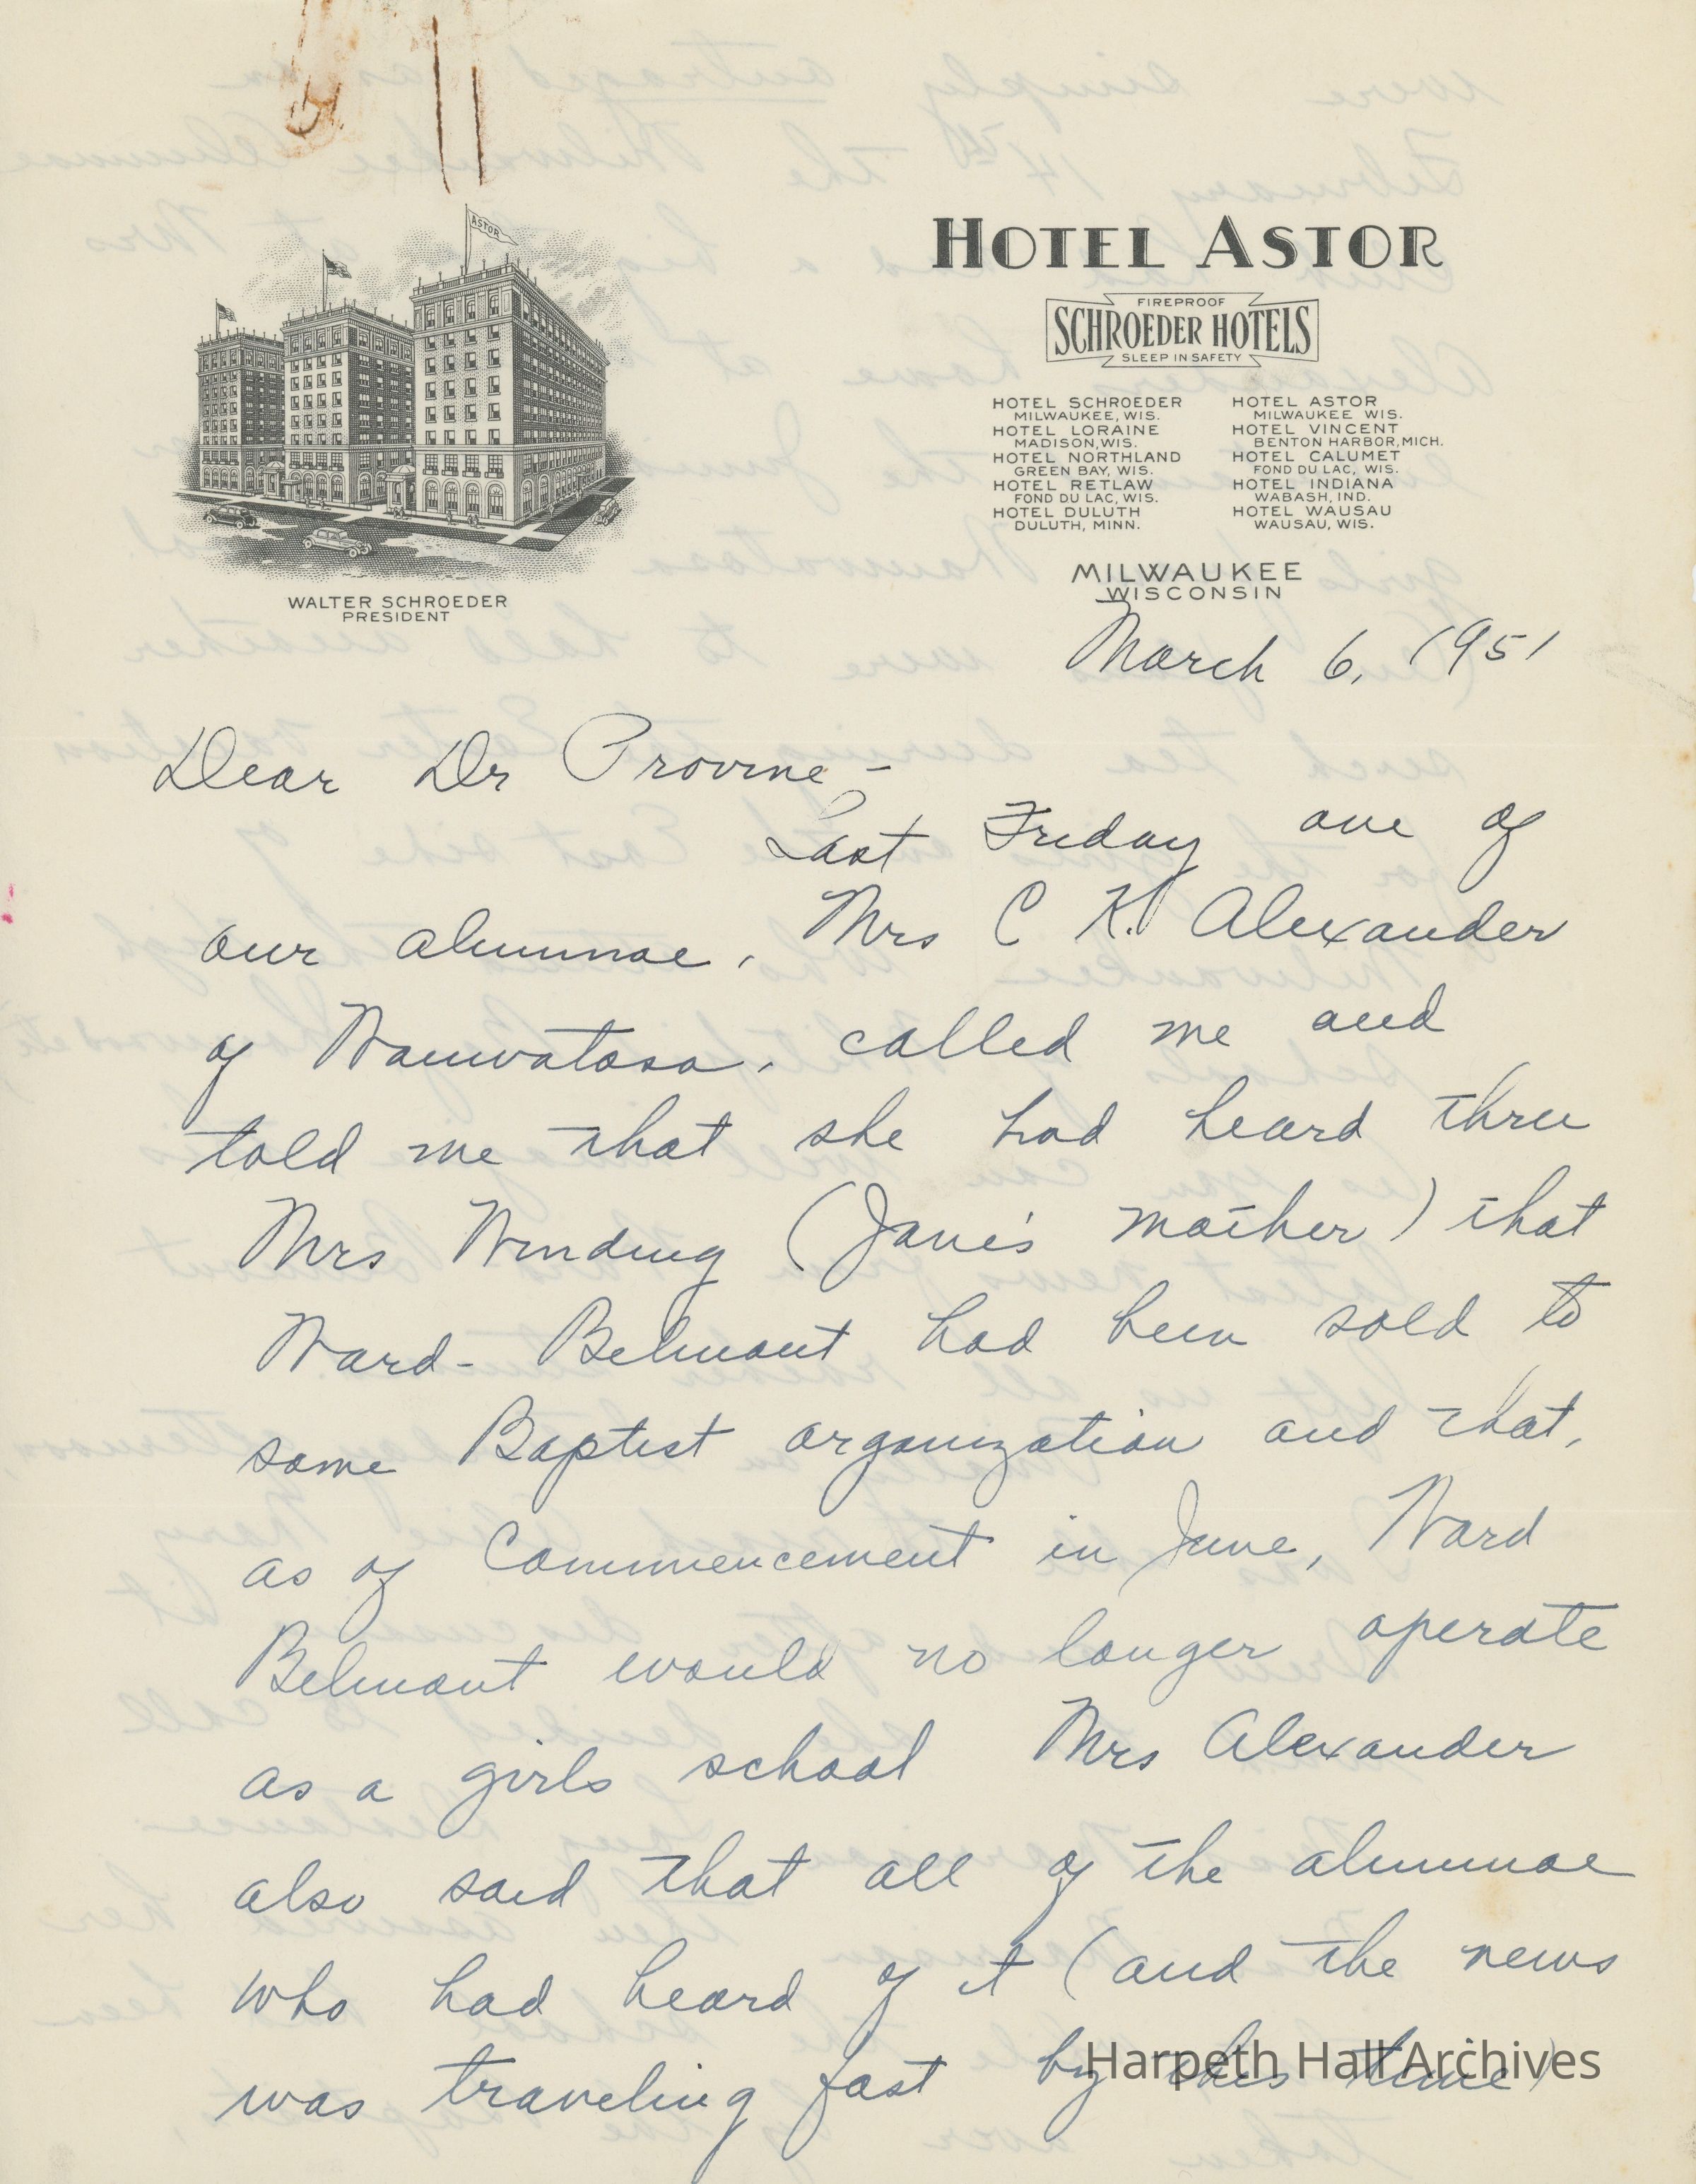 ASTOR
HOTEL ASTOR
FIREPROOF
SCHROEDER HOTELS
SLEEP IN SAFETY
HOTEL SCHROEDER
MILWAUKEE, WIS.
HOTEL LORAINE
MADISON, WIS.
HOTEL NORTHLAND
GREEN BAY, WIS.
HOTEL RETLAW
FOND DU LAC, WIS.
HOTEL DULUTH
DULUTH, MINN.
HOTEL ASTOR
MILWAUKEE WIS.
HOTEL VINCENT
BENTON HARBOR, MICH.
HOTEL CALUMET
FOND DU LAC, WIS.
HOTEL INDIANA
WABASH, IND.
HOTEL WAUSAU
WAUSAU, WIS.
WALTER SCHROEDER
PRESIDENT
MILWAUKEE
WISCONSIN
March 6, 1951
Dear Dr Provine -
Last Friday one of
our alumnae, Mrs C K. Alexander
of Wauwatosa, called me and
told me that she had heard thru
Mrs Winding (Jane's mother) that
Ward-Belmont had been sold to
some Baptist organization and that,
as of Commencement in June, Ward
Belmont would no longer operate
as a girls school Mrs Alexander
also said that all of the alumnae
who had heard of it (and the news
was traveling fast by this time)
Harpeth Hall Archives